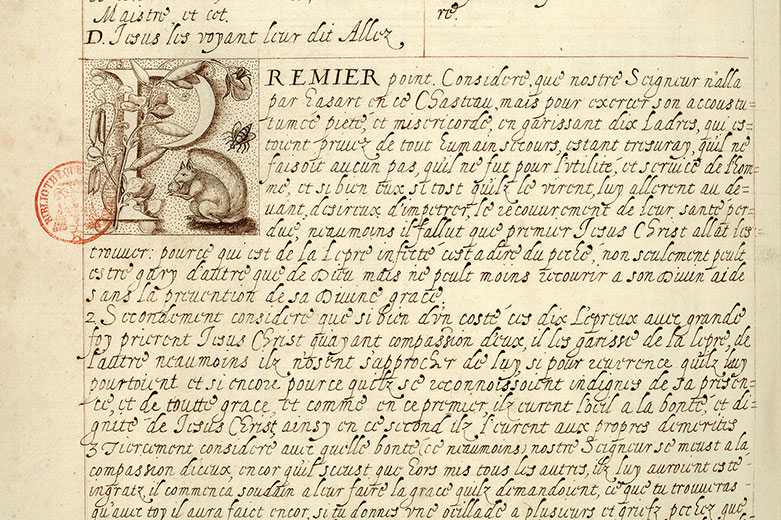 Maistre, et cet.
re.
D. Jesus les voyant leur dit Allez,
PREMIER point, Considere, que nostre Seigneur n'alla
par hasart en ce Chasteau, mais pour exercer son accoustu=
tumée pieté, et misericorde, en garissant dix Ladres, qui es=
toient privez de tout humain secours, estant tresvray, qu'il ne
faisoit aucun pas, qu'il ne fut pour l'utilité, et service de l'hom=
me, et si bien eux si tost qu'ilz le virent, luy allerent au de=
vant, desireux d'impetrer, le recouvrement de leur santé per=
due, neaumoins il fallut que premier Jesus Christ allat les
trouver: pource qui est de la Lepre infecté c'est a dire du peché, non seulement peult
estre guéry d'autre que de Dieu mais ne peult moins recourir a son Divin aide
sans la prevention de sa Divine grace.
2. Secondement considere que si bien d'vn costé, ces dix Lepreux avec grande
foy prierent Jesus Christ qu'ayant compassion d'eux, il les garisse de la lepre, de
l'autre neaumoins ilz n'osent s'approcher de luy, si pour reverence qu'ilz luy
portoient et si encore pource qu'ilz se reconnoissoient indignes de sa presen=
ce, et de toutte grace, et comme en ce premier, ilz eurent l'oeil a la bonté, et di=
gnite de Jesus Christ, ainsy en ce second ilz l'eurent aux propres demerites
3. Tiercement considere avec quelle bonté, ce neaumoins, nostre Seigneur se meust a la
compassion d'iceux, encor qu'il sceust que hors mis tous les autres, ilz luy auroient esté
ingratz, il commença soudain a leur faire la grace qu'ilz demandoient, ce que tu trouveras
qu'avec toy il aura faict encor, si tu donnes vne oeillade a plusieurs et griefz pechez que
BIBLIOTHEQUE